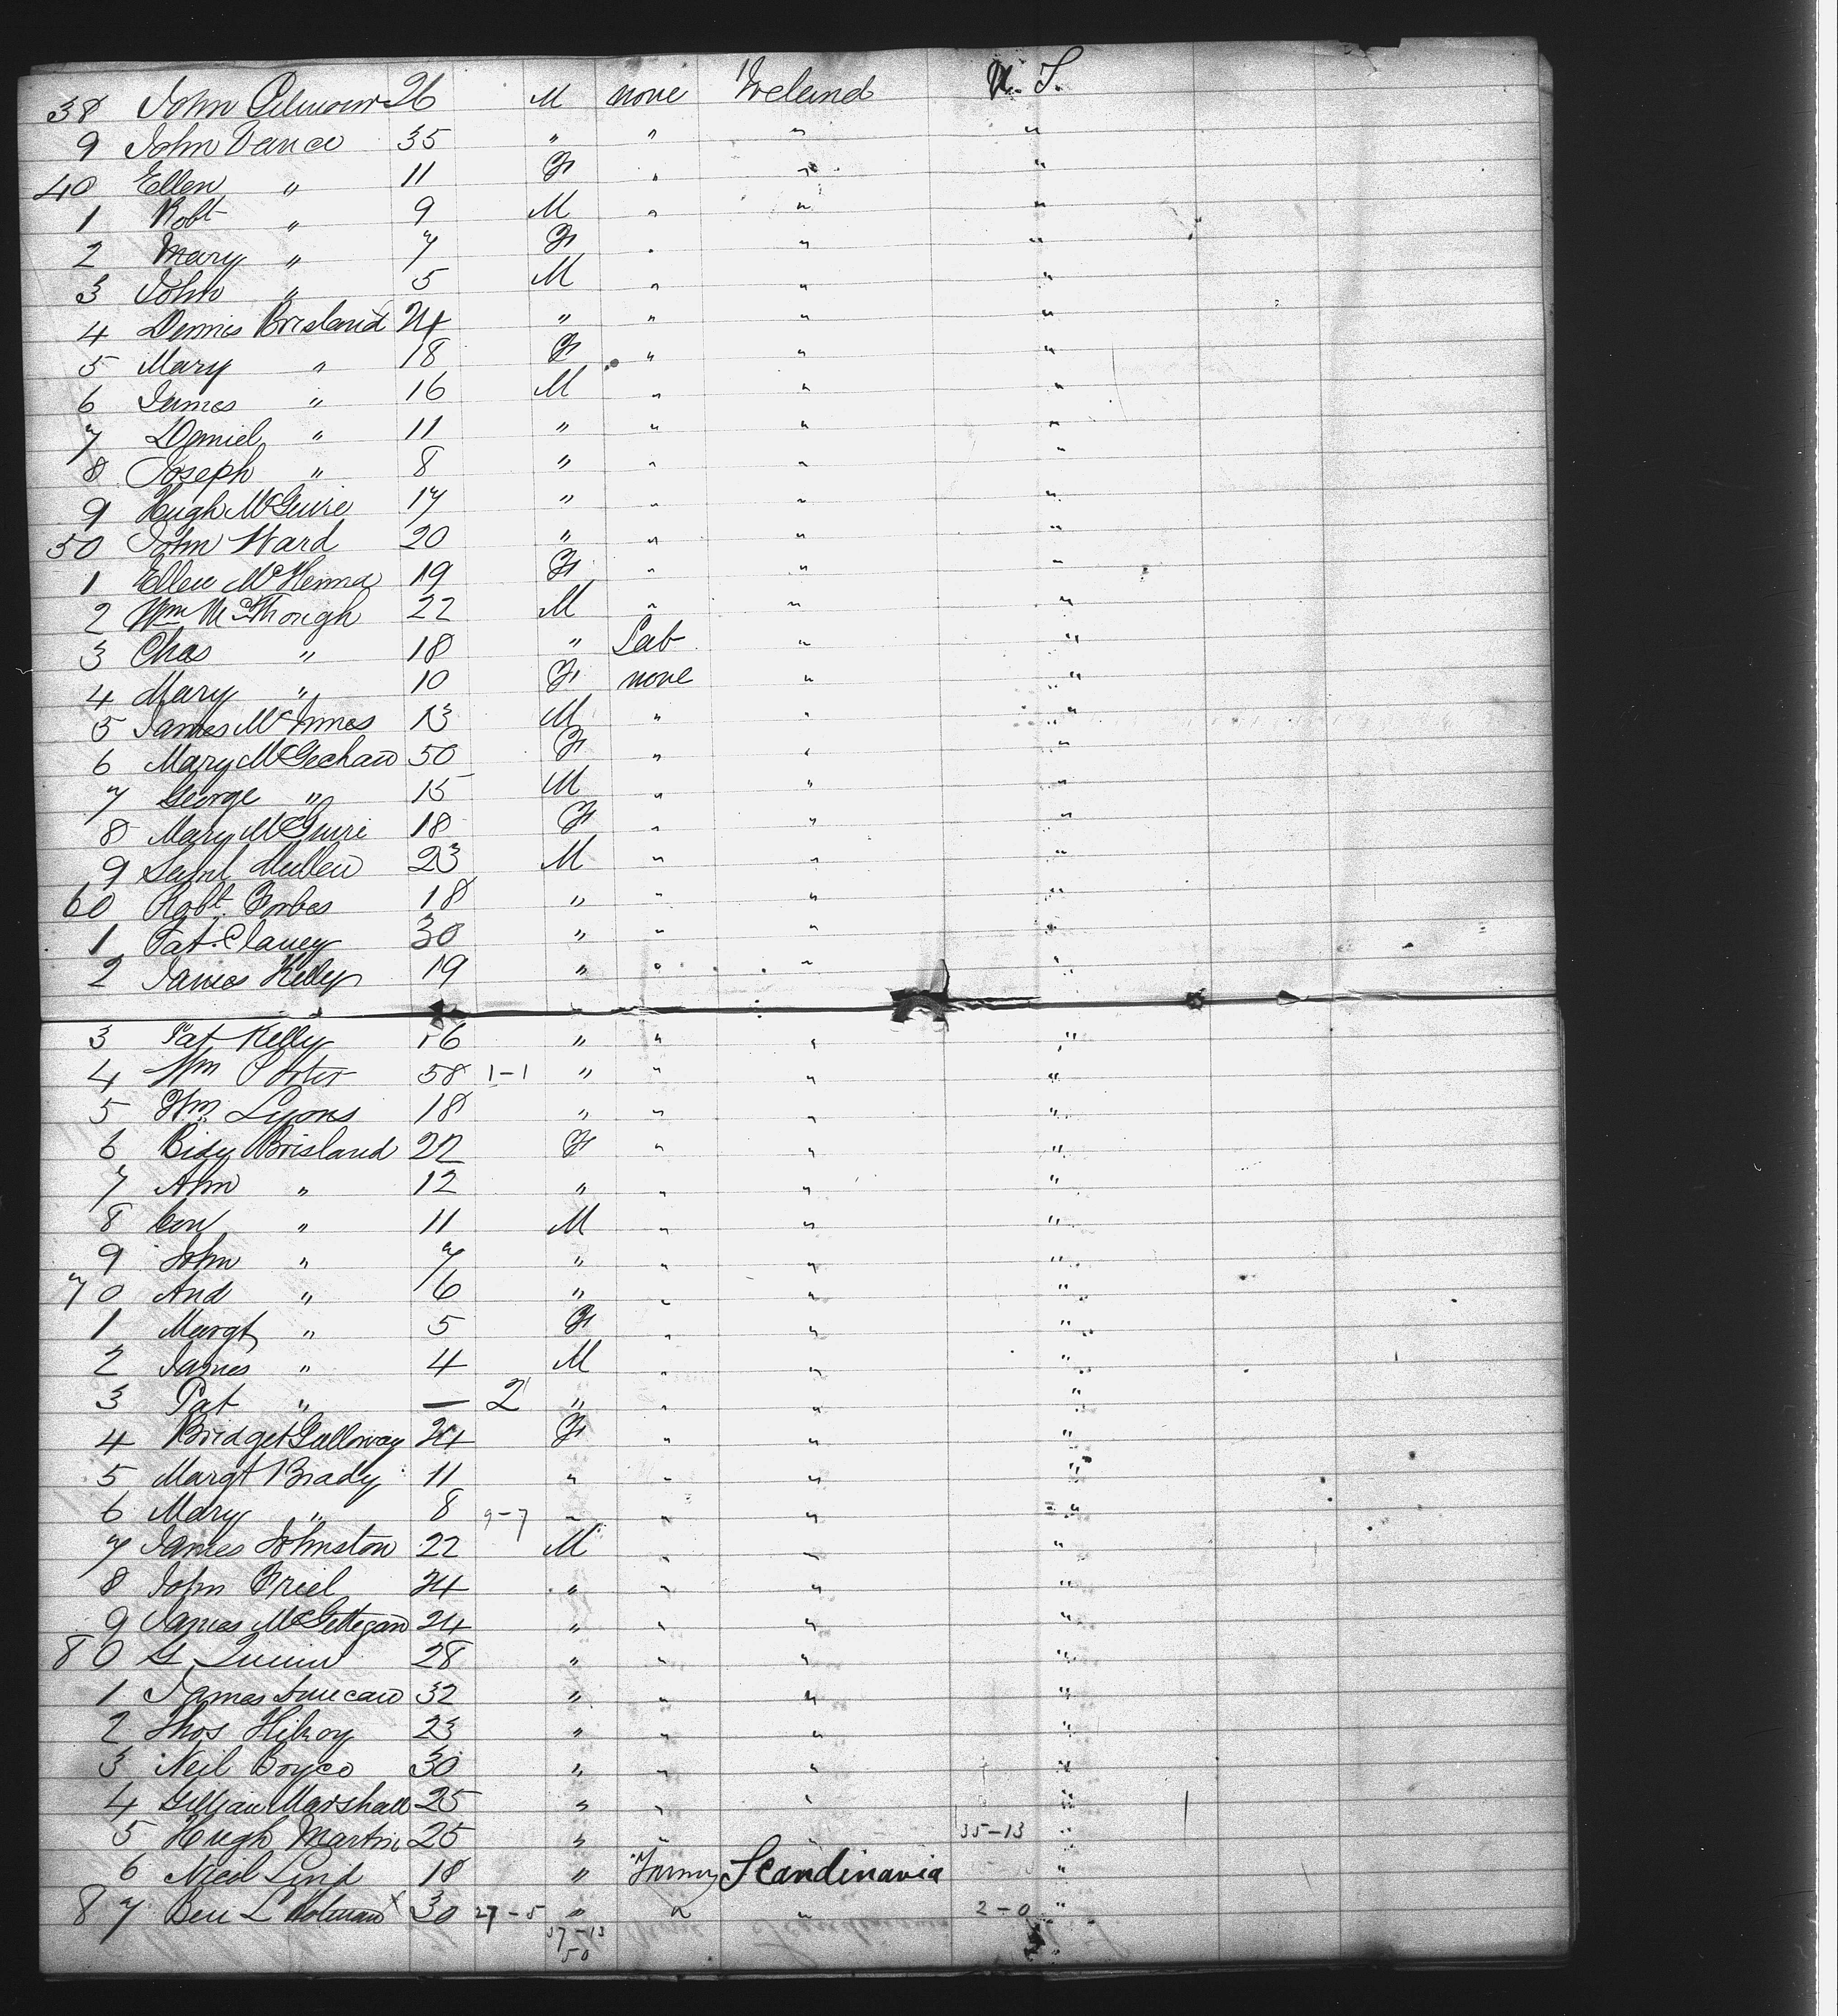 38 John Gilmour 26 M none Ireland U. S.
9 John Vance 35 " " " "
40 Ellen " 11 F " " "
1 Robt " 9 M " " "
2 Mary " 7 F " " "
3 John " 5 M " " "
4 Dennis Brisland 24 " " " "
5 Mary " 18 F " " "
6 James " 16 M " " "
7 Daniel " 11 " " " "
8 Joseph " 8 " " " "
9 Hugh McGuire 17 " " " "
50 John Ward 20 " " " "
1 Ellen McKenna 19 F " " "
2 Wm 22 M " " "
3 Chas " 18 " Lab " "
4 Mary " 10 F none " "
5 James McInnes 13 M " " "
6 Mary McGechan 50 F " " "
7 George " 15 M " " "
8 Mary McGuire 18 F " " "
9 Saml Mullen 23 M " " "
60 Robt Forbes 18 " " " "
1 Pat Clancy 30 " " " "
2 James Kelly 19 " " " "
3 Pat Kelly 16 " " " "
4 Wm Porter 58 1-1 " " " "
5 Wm Lyons 18 " " " "
6 Bidy Brisland 22 F " " "
7 Ann " 12 " " " "
8 Con " 11 M " " "
9 John " 7 " " " "
70 And " 6 " " " "
1 Margt " 5 F " " "
2 James " 4 M " " "
3 Pat " — 2 " " " "
4 Bridget Galloway 24 F " " "
5 Margt Brady 11 " " " "
6 Mary " 8 9-7 " " " "
7 James Johnston 22 M " " "
8 John Friel 24 " " " "
9 James McGettegan 24 " " " "
80 G Quinn 28 " " " "
1 James Duncan 32 " " " "
2 Thos Kilroy 23 " " " "
3 Neil Boyce 30 " " " "
4 Gillian Marshall 25 " " " "
5 Hugh Martin 25 " " " 35-13 "
6 Nicol Lind 18 " Scandinavia "
87 Ben L 30 27-5 " " " 2-0 "
37-13
50